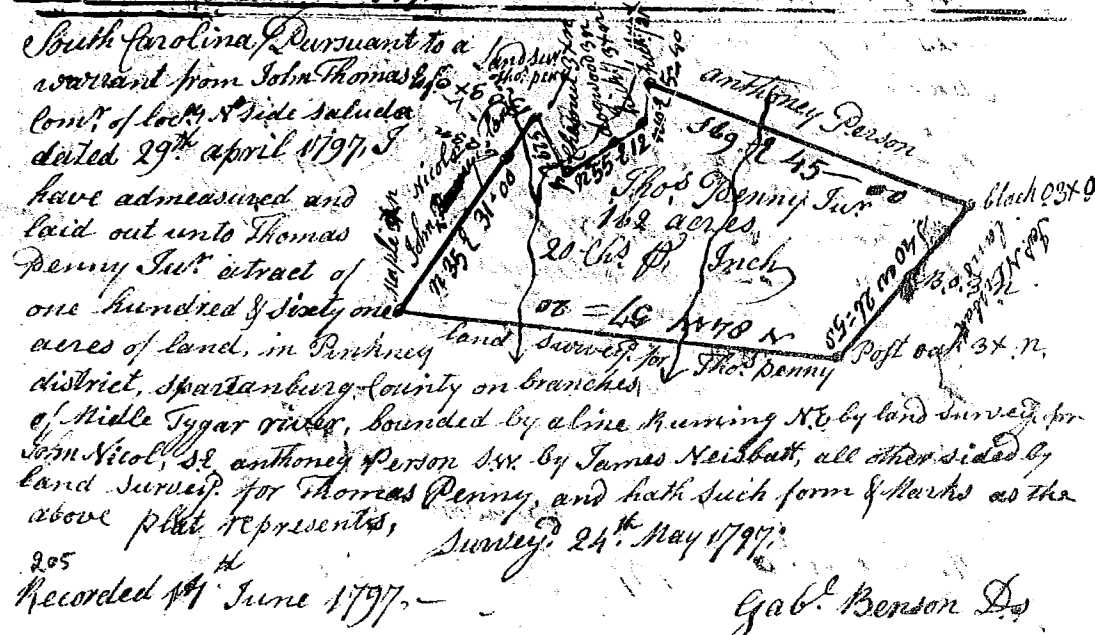 South Carolina Pursuant to a
warrant from John Thomas
Comr. of locn. N side saluda
dated 29th april 1797, I
have admeasured and
laid out unto Thomas
Penny Jur. a tract of
one hundred & sixty one
acres of land, in Pinkney
district, Spartanburg County on branches
of Midle Tygar river, bounded by a line Running N.E by land survey for
John Nicol, S.E anthoney Person S.W. by James Neisbatt, all other sided by
land survey'd. for Thomas Penny, and hath such form & Marks as the
above plat represents,
Survey'd 24th May 1797.
205
Recorded 1st June 1797.
Gabl. Benson D.s
land sur
Thos. pen
anthoney Person
S69 E 45
Thos. Penny Jur.
162 acres
20 Chs. pr. Inch
black O 3x O
Jas. Neisbatt
land
B.O. 3x n
S40 W 26=50
Post oak 3x.n.
N 84 W 57=20
land survey'd. for Thos. penny
maple 3xn
John Nicols
N 35 E 31=00
N55 E 12
chesnut 3xn
dogwood 3xn